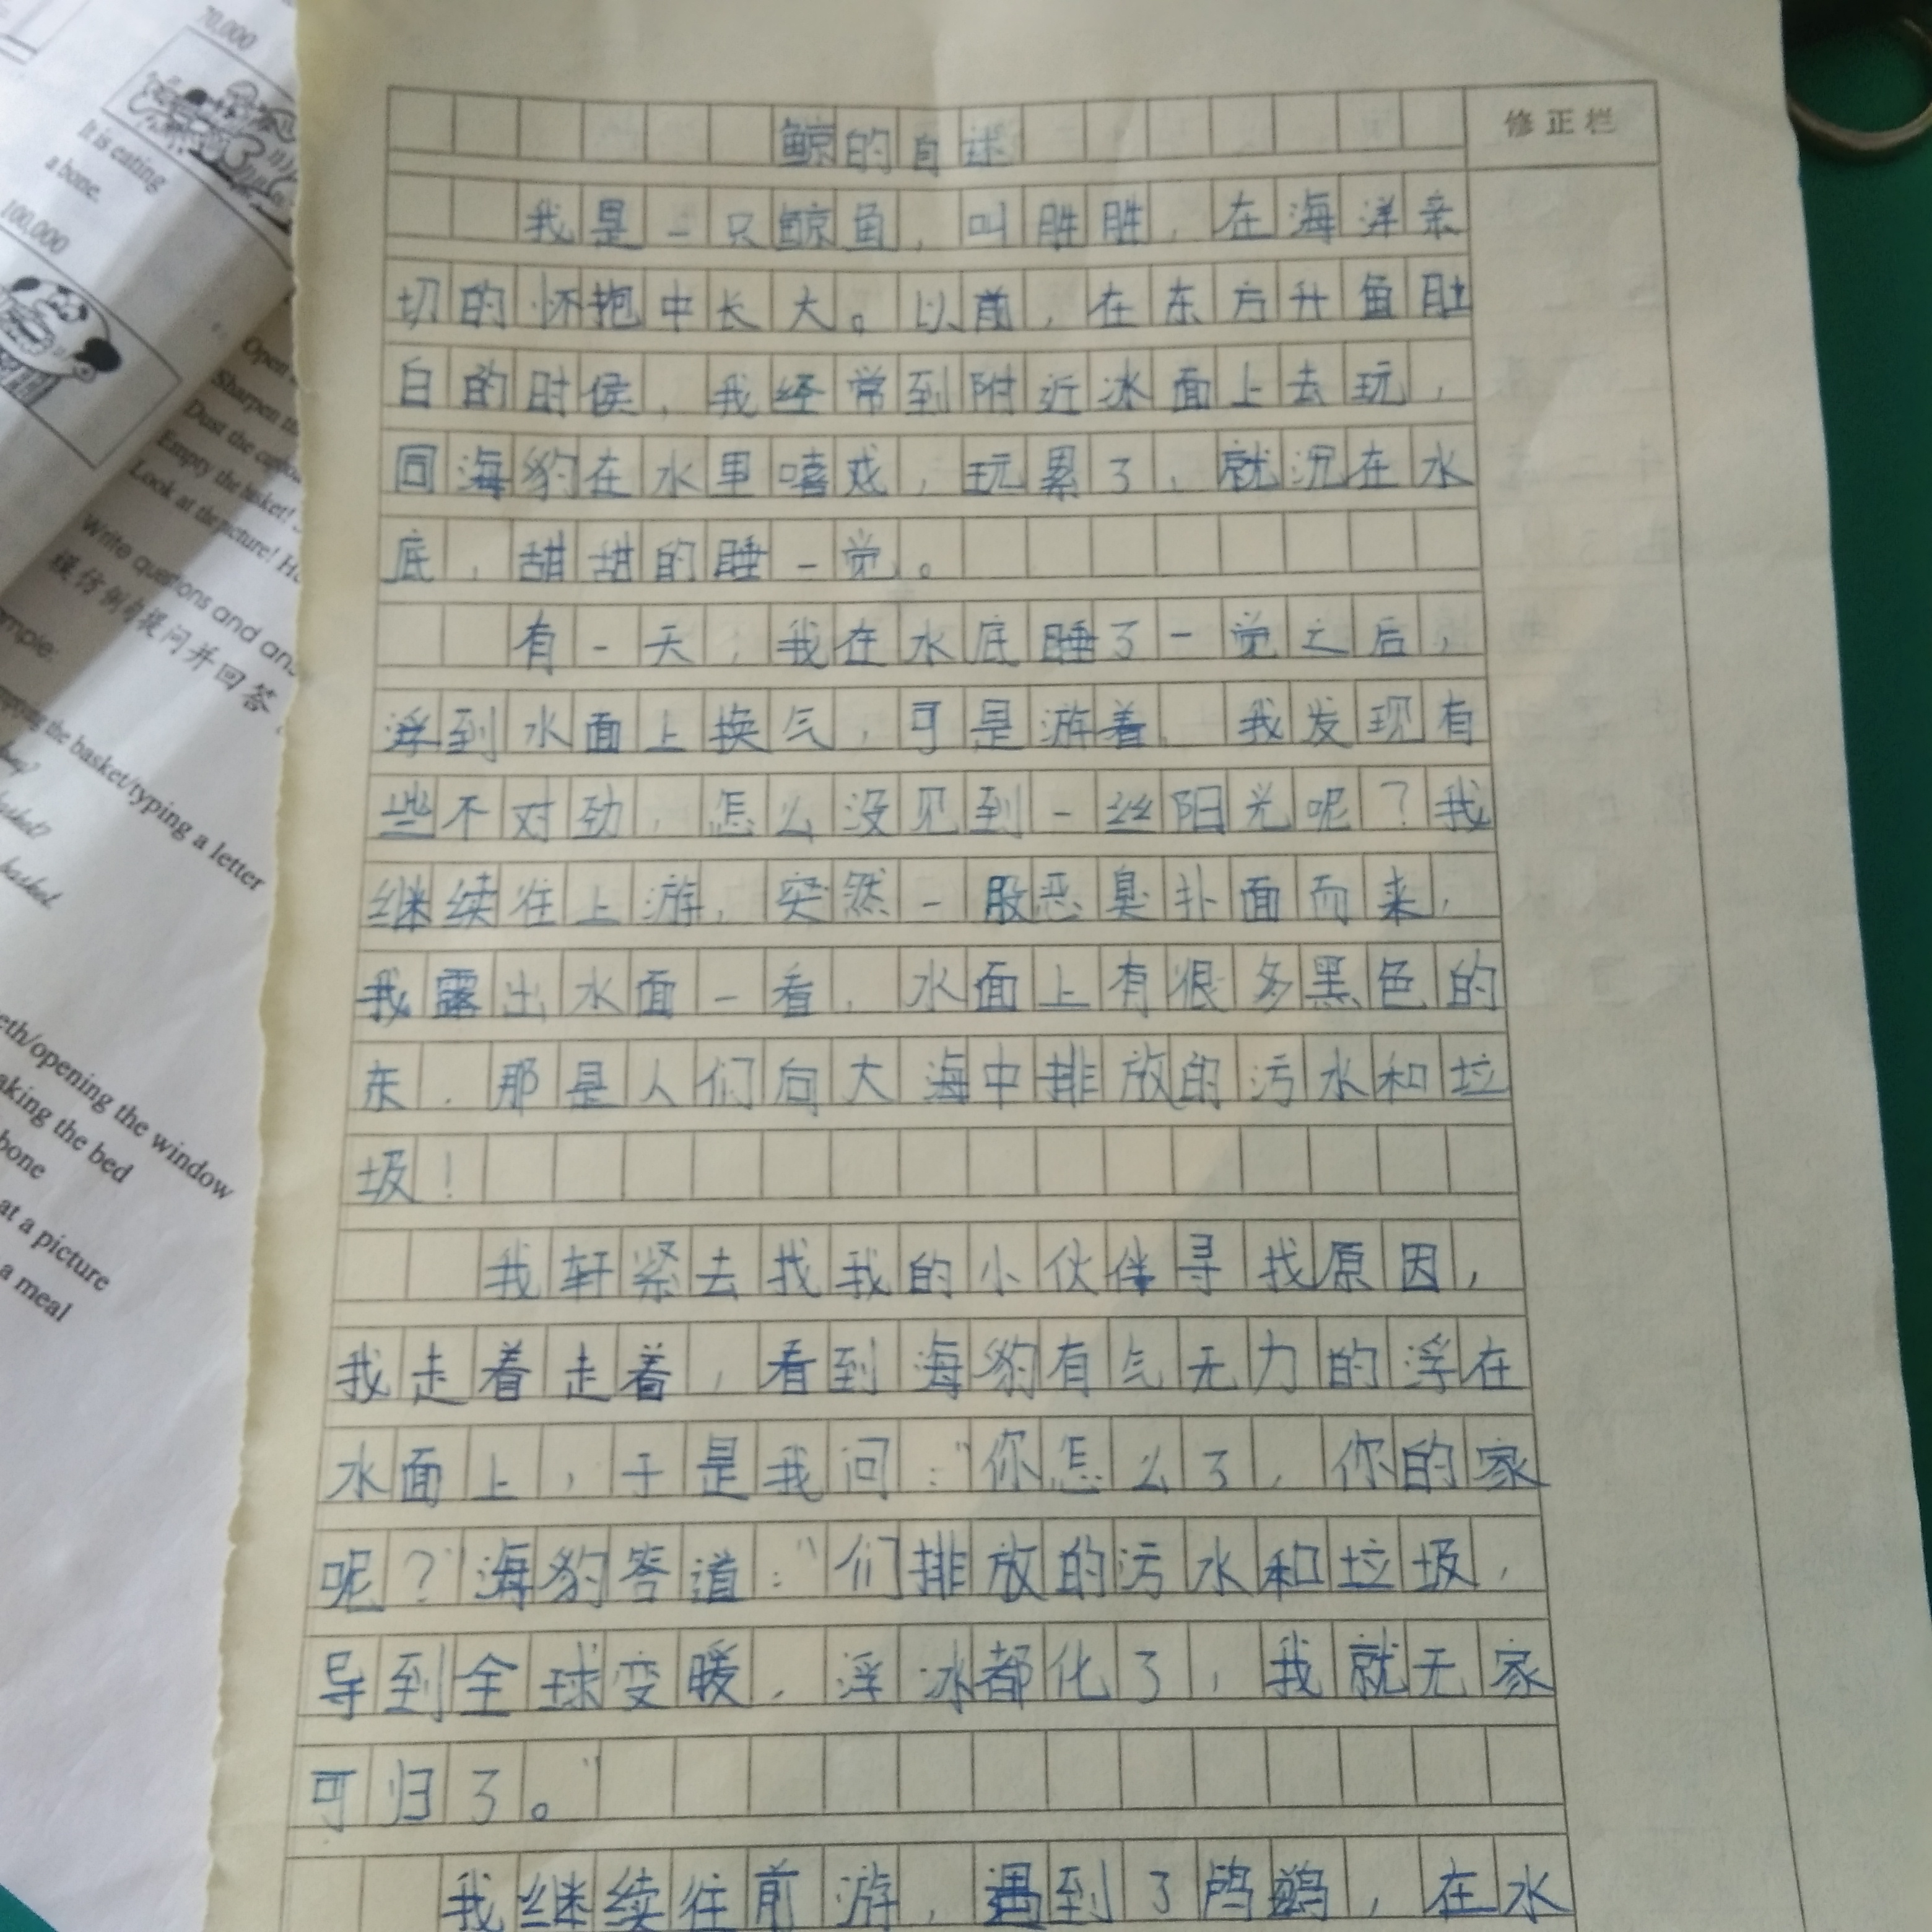 70,000
It is eating
a bone.
100,000
Open
Sharpen the
Dust the
Empty the basket!
Look at the picture!
Write questions and
模仿例句提问并回答
the basket/typing a letter
basket?
basket.
/opening the window
making the bed
bone
at a picture
a meal
修正栏
鲸的自述
我是一只鲸鱼，叫胜胜，在海洋亲
切的怀抱中长大。以前，在东方升鱼肚
白的时侯，我经常到附近冰面上去玩，
同海豹在水里嘻戏，玩累了，就沉在水
底，甜甜的睡一觉。
有一天，我在水底睡了一觉之后，
浮到水面上换气，可是游着，我发现有
些不对劲，怎么没见到一丝阳光呢？我
继续往上游，突然一股恶臭扑面而来，
我露出水面一看，水面上有很多黑色的
东，那是人们向大海中排放的污水和垃
圾！
我轩紧去找我的小伙伴寻找原因，
我走着走着，看到海豹有气无力的浮在
水面上，于是我问：“你怎么了，你的家
呢？”海豹答道：“们排放的污水和垃圾，
导到全球变暖，浮冰都化了，我就无家
可归了。”
我继续往前游，遇到了，在水